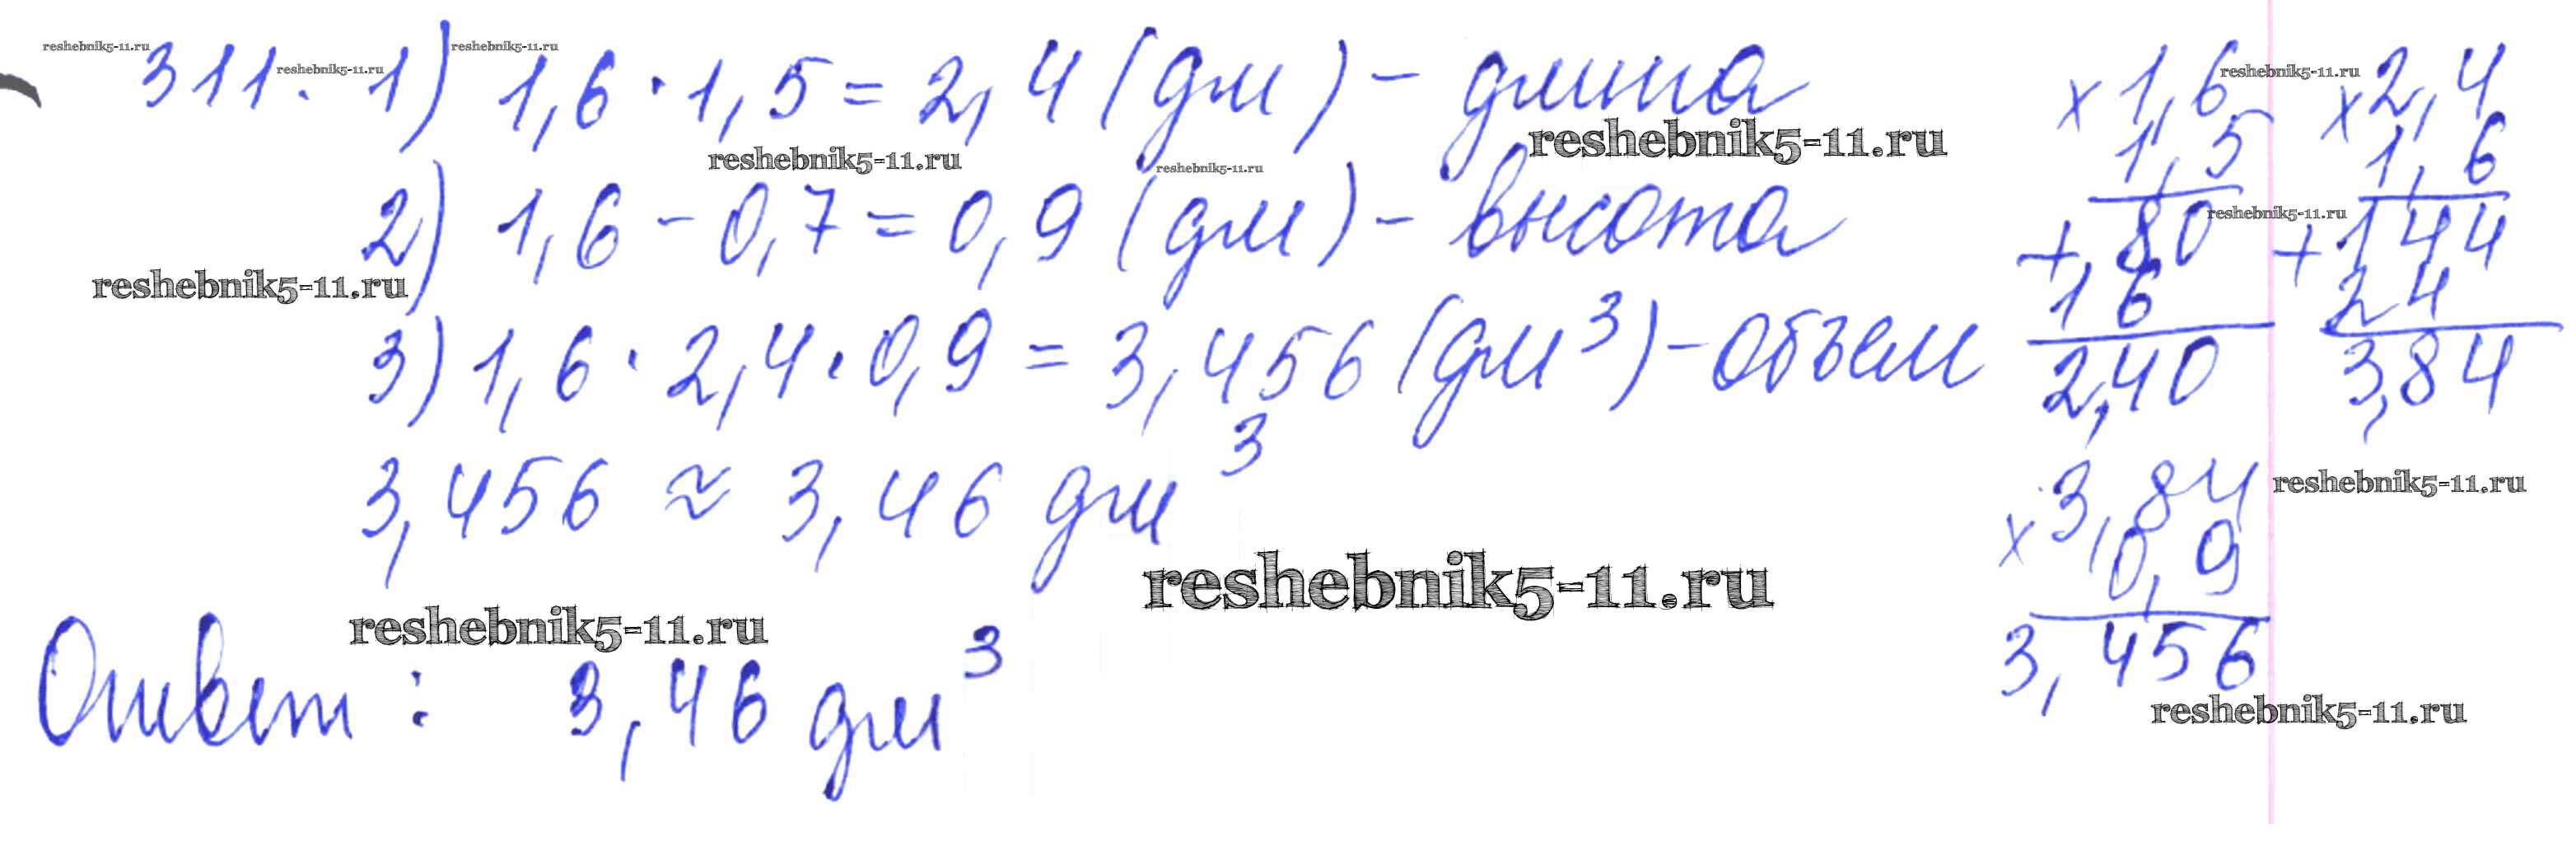 reshebnik5-11.ru reshebnik5-11.ru
reshebnik5-11.ru
311. 1) 1,6 · 1,5 = 2,4 (дм) – длина
reshebnik5-11.ru reshebnik5-11.ru
reshebnik5-11.ru
2) 1,6 – 0,7 = 0,9 (дм) – высота
reshebnik5-11.ru
3) 1,6 · 2,4 · 0,9 = 3,456 (дм³) – объем
3,456 ≈ 3,46 дм³
reshebnik5-11.ru
reshebnik5-11.ru
Ответ: 3,46 дм³
× 1,6
1,5
+ 80
16
2,40
reshebnik5-11.ru
× 2,4
1,6
reshebnik5-11.ru
+ 144
24
3,84
× 3,84
0,9
3,456
reshebnik5-11.ru
reshebnik5-11.ru